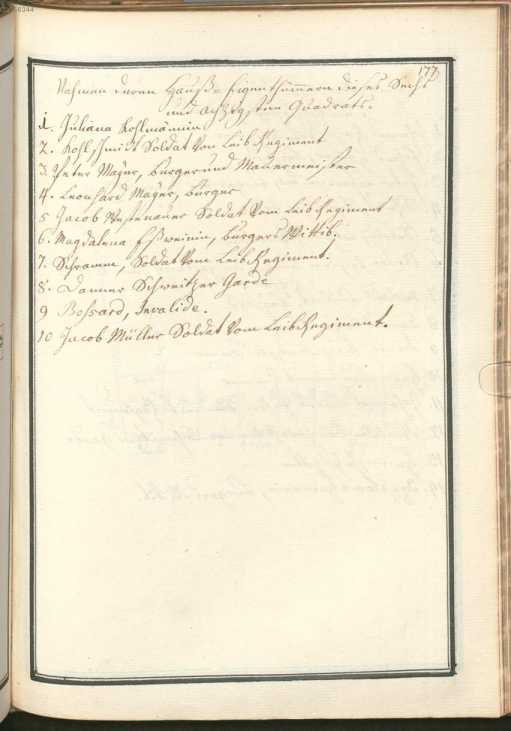 177
Nahmen deren Hauß-Eigenthümmern dieses Sechs
und achzigsten Quadrats.
1. Juliana Kohlmännin
2. Kohlschmidt Soldat vom Leib Regiment
3. Peter Mayer, burger und Mauermeister
4. Leonhard Mayer, burger
5 Jacob Soldat vom Leib Regiment
6. Magdalena Eßweinin, burgers Wittib.
7. Schramm, Soldat vom Leib Regiment.
8. Danner Schweitzer Garde
9 Bossard, Invalide.
10 Jacob Müller Soldat vom Leib Regiment.